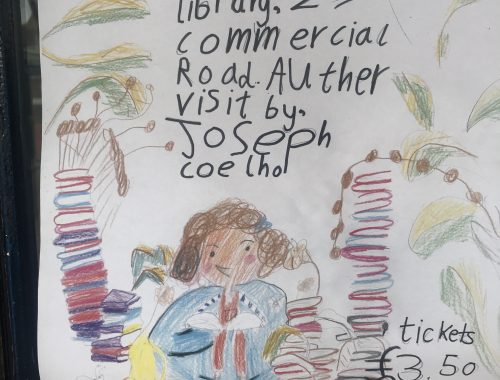 library, 25
commercial
Road. AUther
visit by,
Joseph
coelho
tickets
£3.50